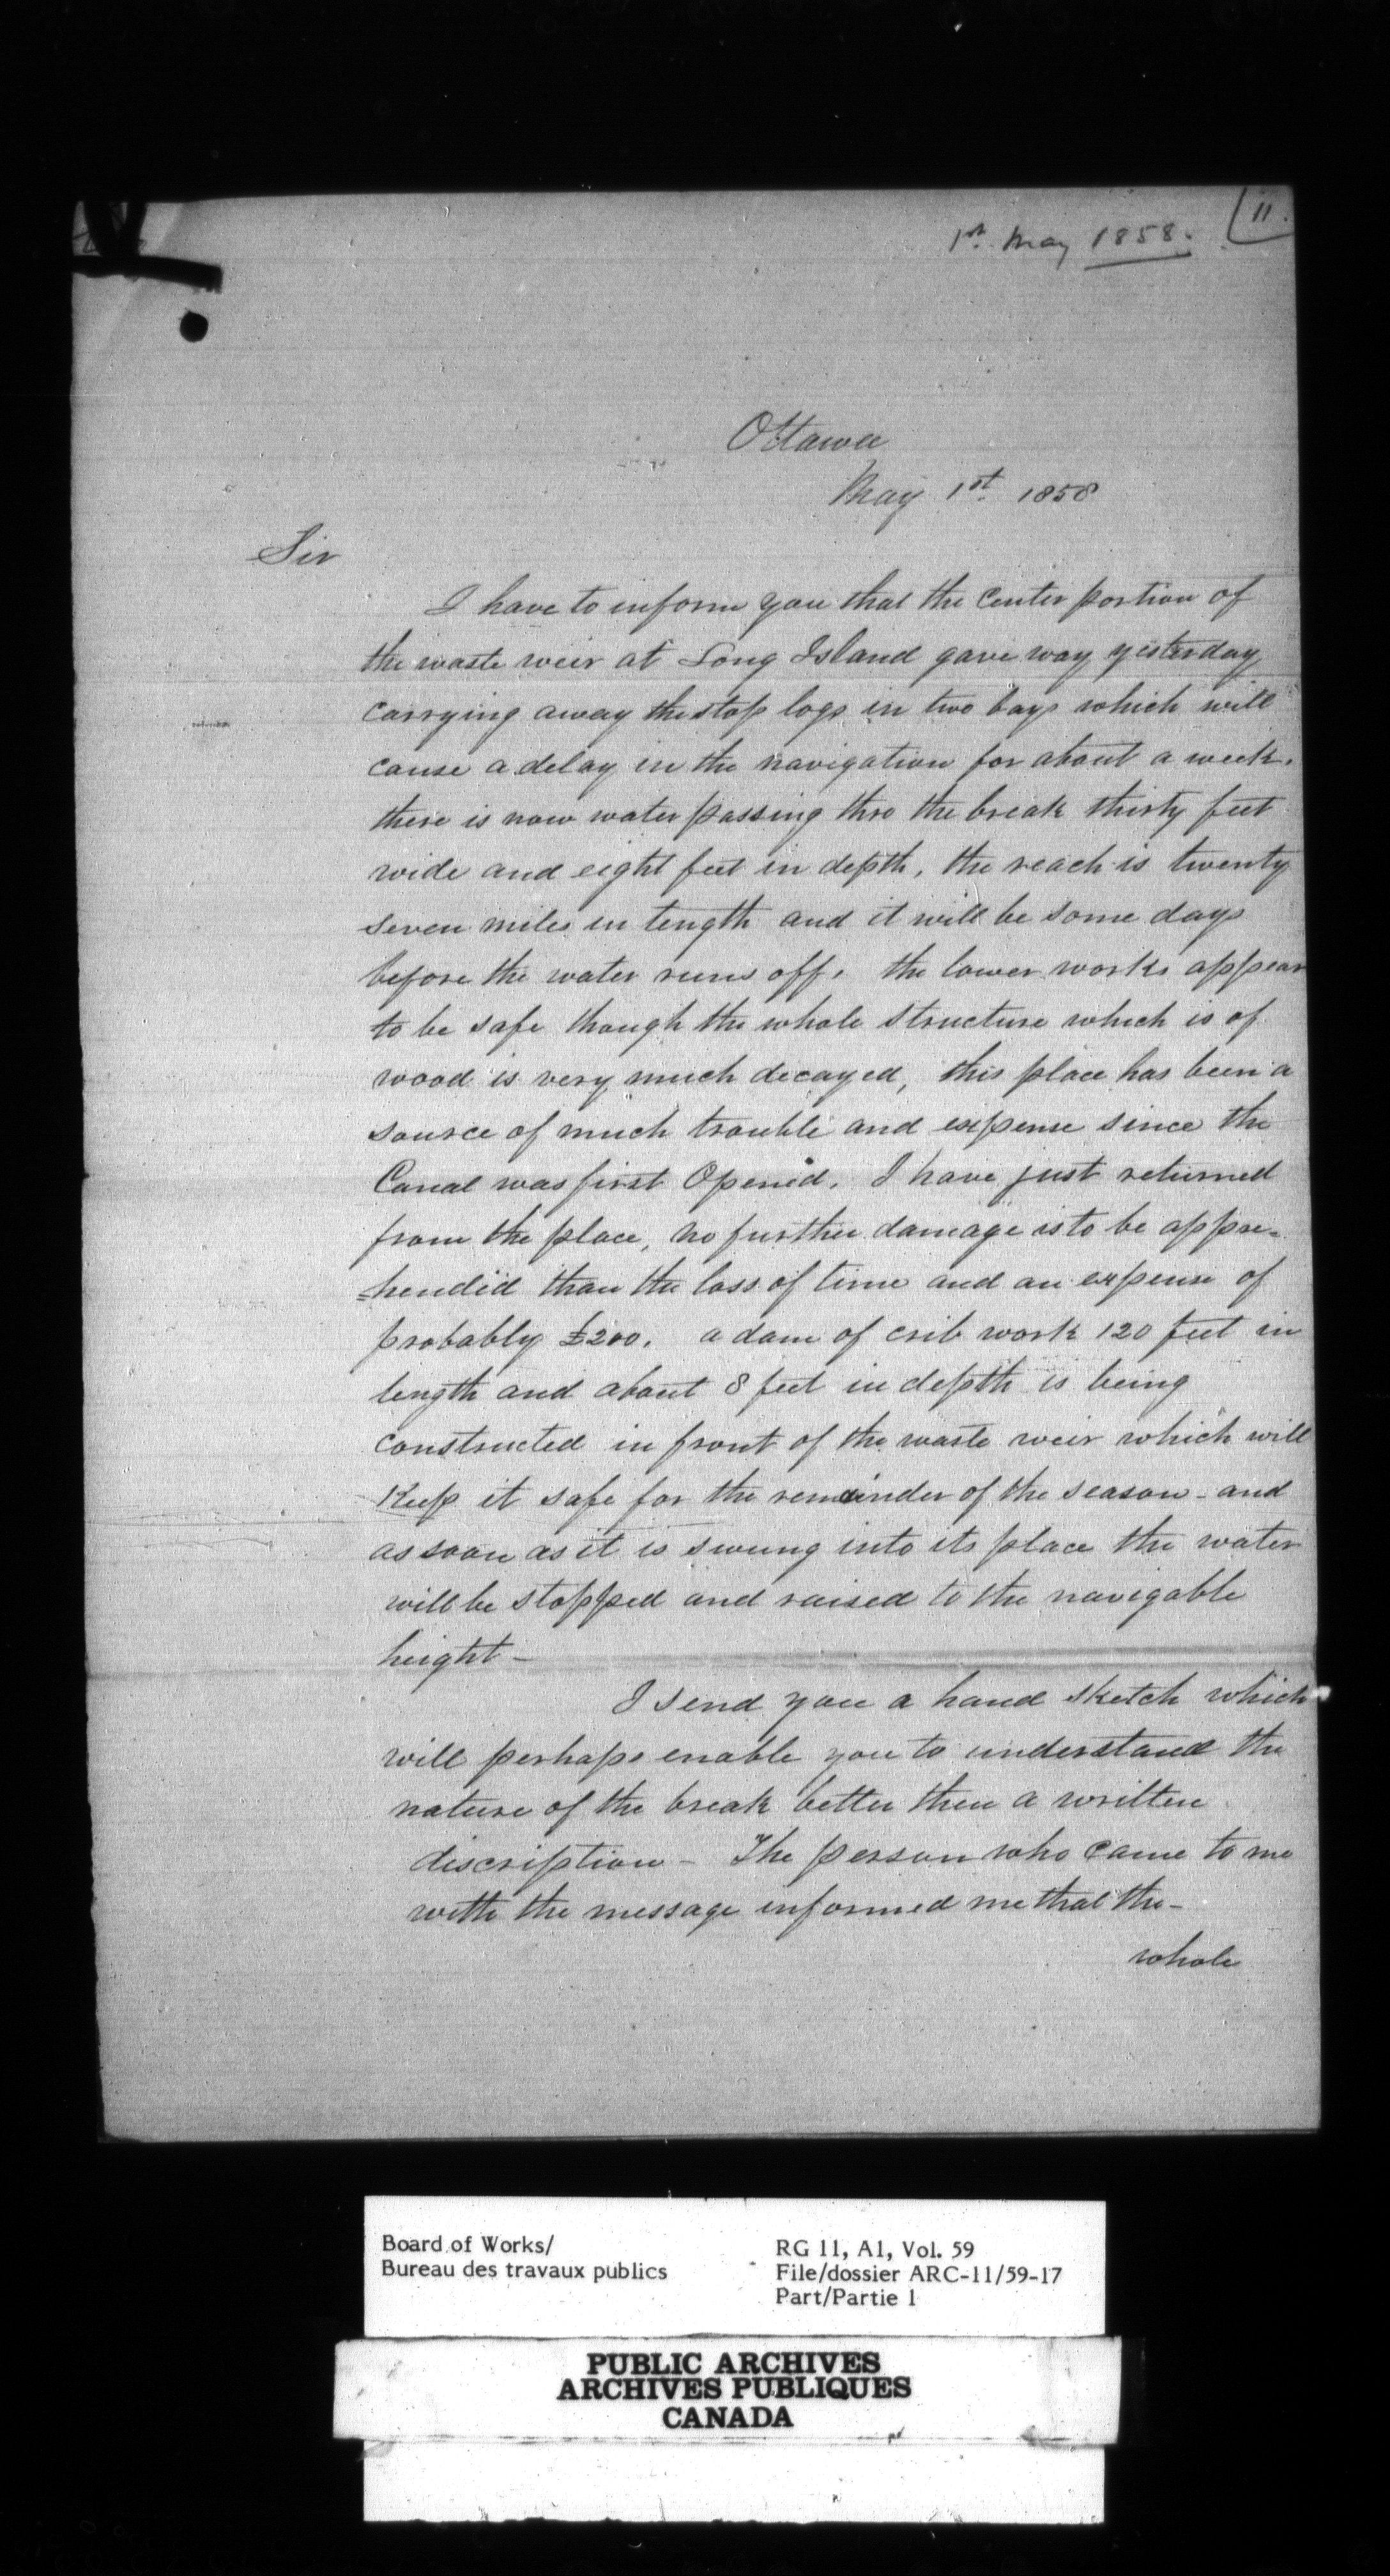 11.
1st. May 1858.
Ottawa
May 1st. 1858
Sir
I have to inform you that the Center portion of
the waste weir at Long Island gave way yesterday
carrying away the stop logs in two bays which will
cause a delay in the navigation for about a week.
there is now water passing thro the break thirty feet
wide and eight feet in depth, the reach is twenty
seven miles in length and it will be some days
before the water runs off. the lower works appear
to be safe though the whole structure which is of
wood is very much decayed, this place has been a
source of much trouble and expense since the
Canal was first Opened. I have just returned
from the place, no further damage is to be appre=
=hended than the loss of time and an expense of
probably £200. a dam of crib work 120 feet in
length and about 8 feet in depth is being
constructed in front of the waste weir which will
Keep it safe for the remainder of the season - and
as soon as it is swung into its place the water
will be stopped and raised to the navigable
height -
I send you a hand sketch which
will perhaps enable you to understand the
nature of the break better then a written
discription - The person who came to me
with the message informed me that the -
whole
Board of Works/
Bureau des travaux publics
RG 11, A1, Vol. 59
File/dossier ARC-11/59-17
Part/Partie 1
PUBLIC ARCHIVES
ARCHIVES PUBLIQUES
CANADA